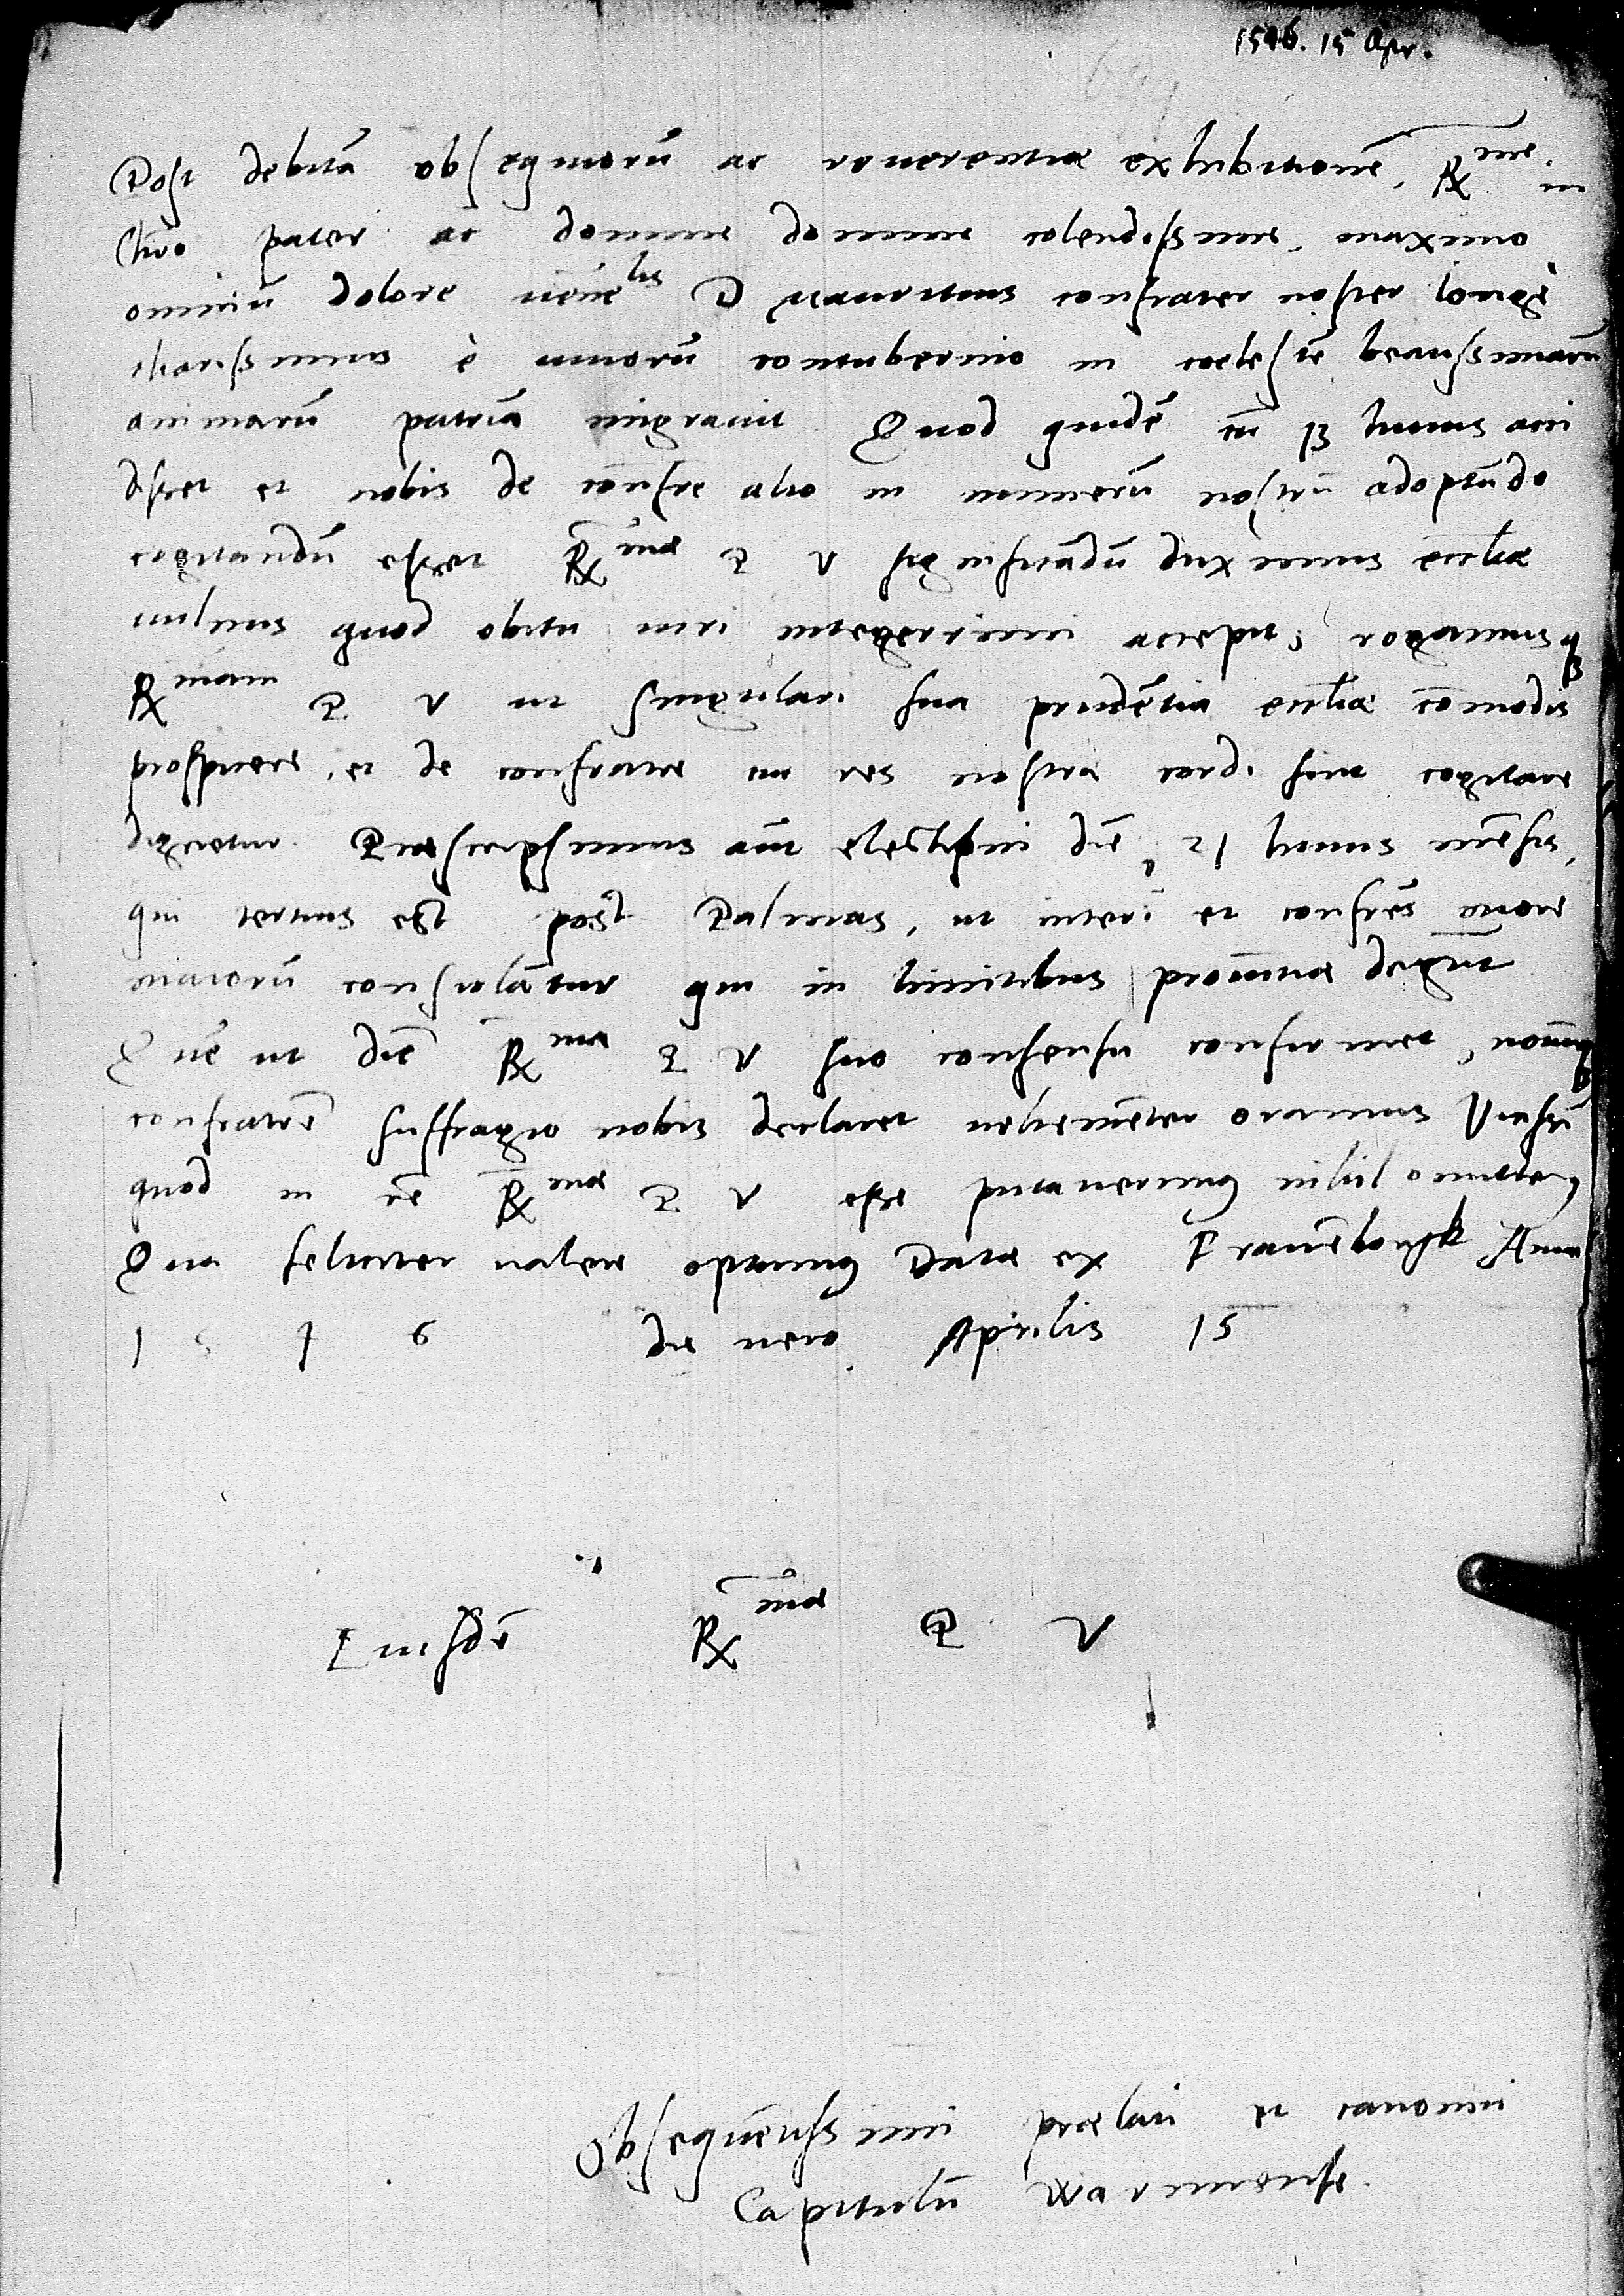 1546. 15 Apr.
699
Post debitā obsequiorū ac reuerentiæ exhibitionē, Rx̄me in
Chro pater ac domine domine colendissime, maximo
omniū dolore ueneˡⁱˢ D Mauritius confrater noster longè
charissimus è uiuorū contubernio in coelestē beatissimarū
animarū patriā migrauit Quod quidē cū hunus acci
disset et nobis de confre alio in numerū nostrū adoptādo
cogitandū esset Rx̄mæ P V significādū duximus eccl̄iæ
uulnus quod obitu uiri integerrimi accepit, rogamusq
Rx̄mam P V ut singulari sua prudētia eccl̄iæ cōmodis
prospicere, et de confratre cui res nostræ cordi sint cogitare
dignetur. Præscripsimus aūt electioni diē 21 huius mēsis,
qui tertius est post Palmas, ut interī et confrēs more
maiorū consulātur qui in limitibus prouinciæ degūt
Quē ut diē Rx̄ma P V suo consensu confirmet, nouūq
confratrē suffragio nobis declaret uehemēter oramus Vicissī
quod in rē Rx̄mæ P V esse putauerimꝰ nihil omittemꝰ
Quā feliciter ualere optamus Datæ ex Frauēburgk Anno
1 5 4 6 die uero Aprilis 15
Eiusdē Rx̄mæ P V
Obsequētissimi prælati et canonici
Capitulū Warmiense.